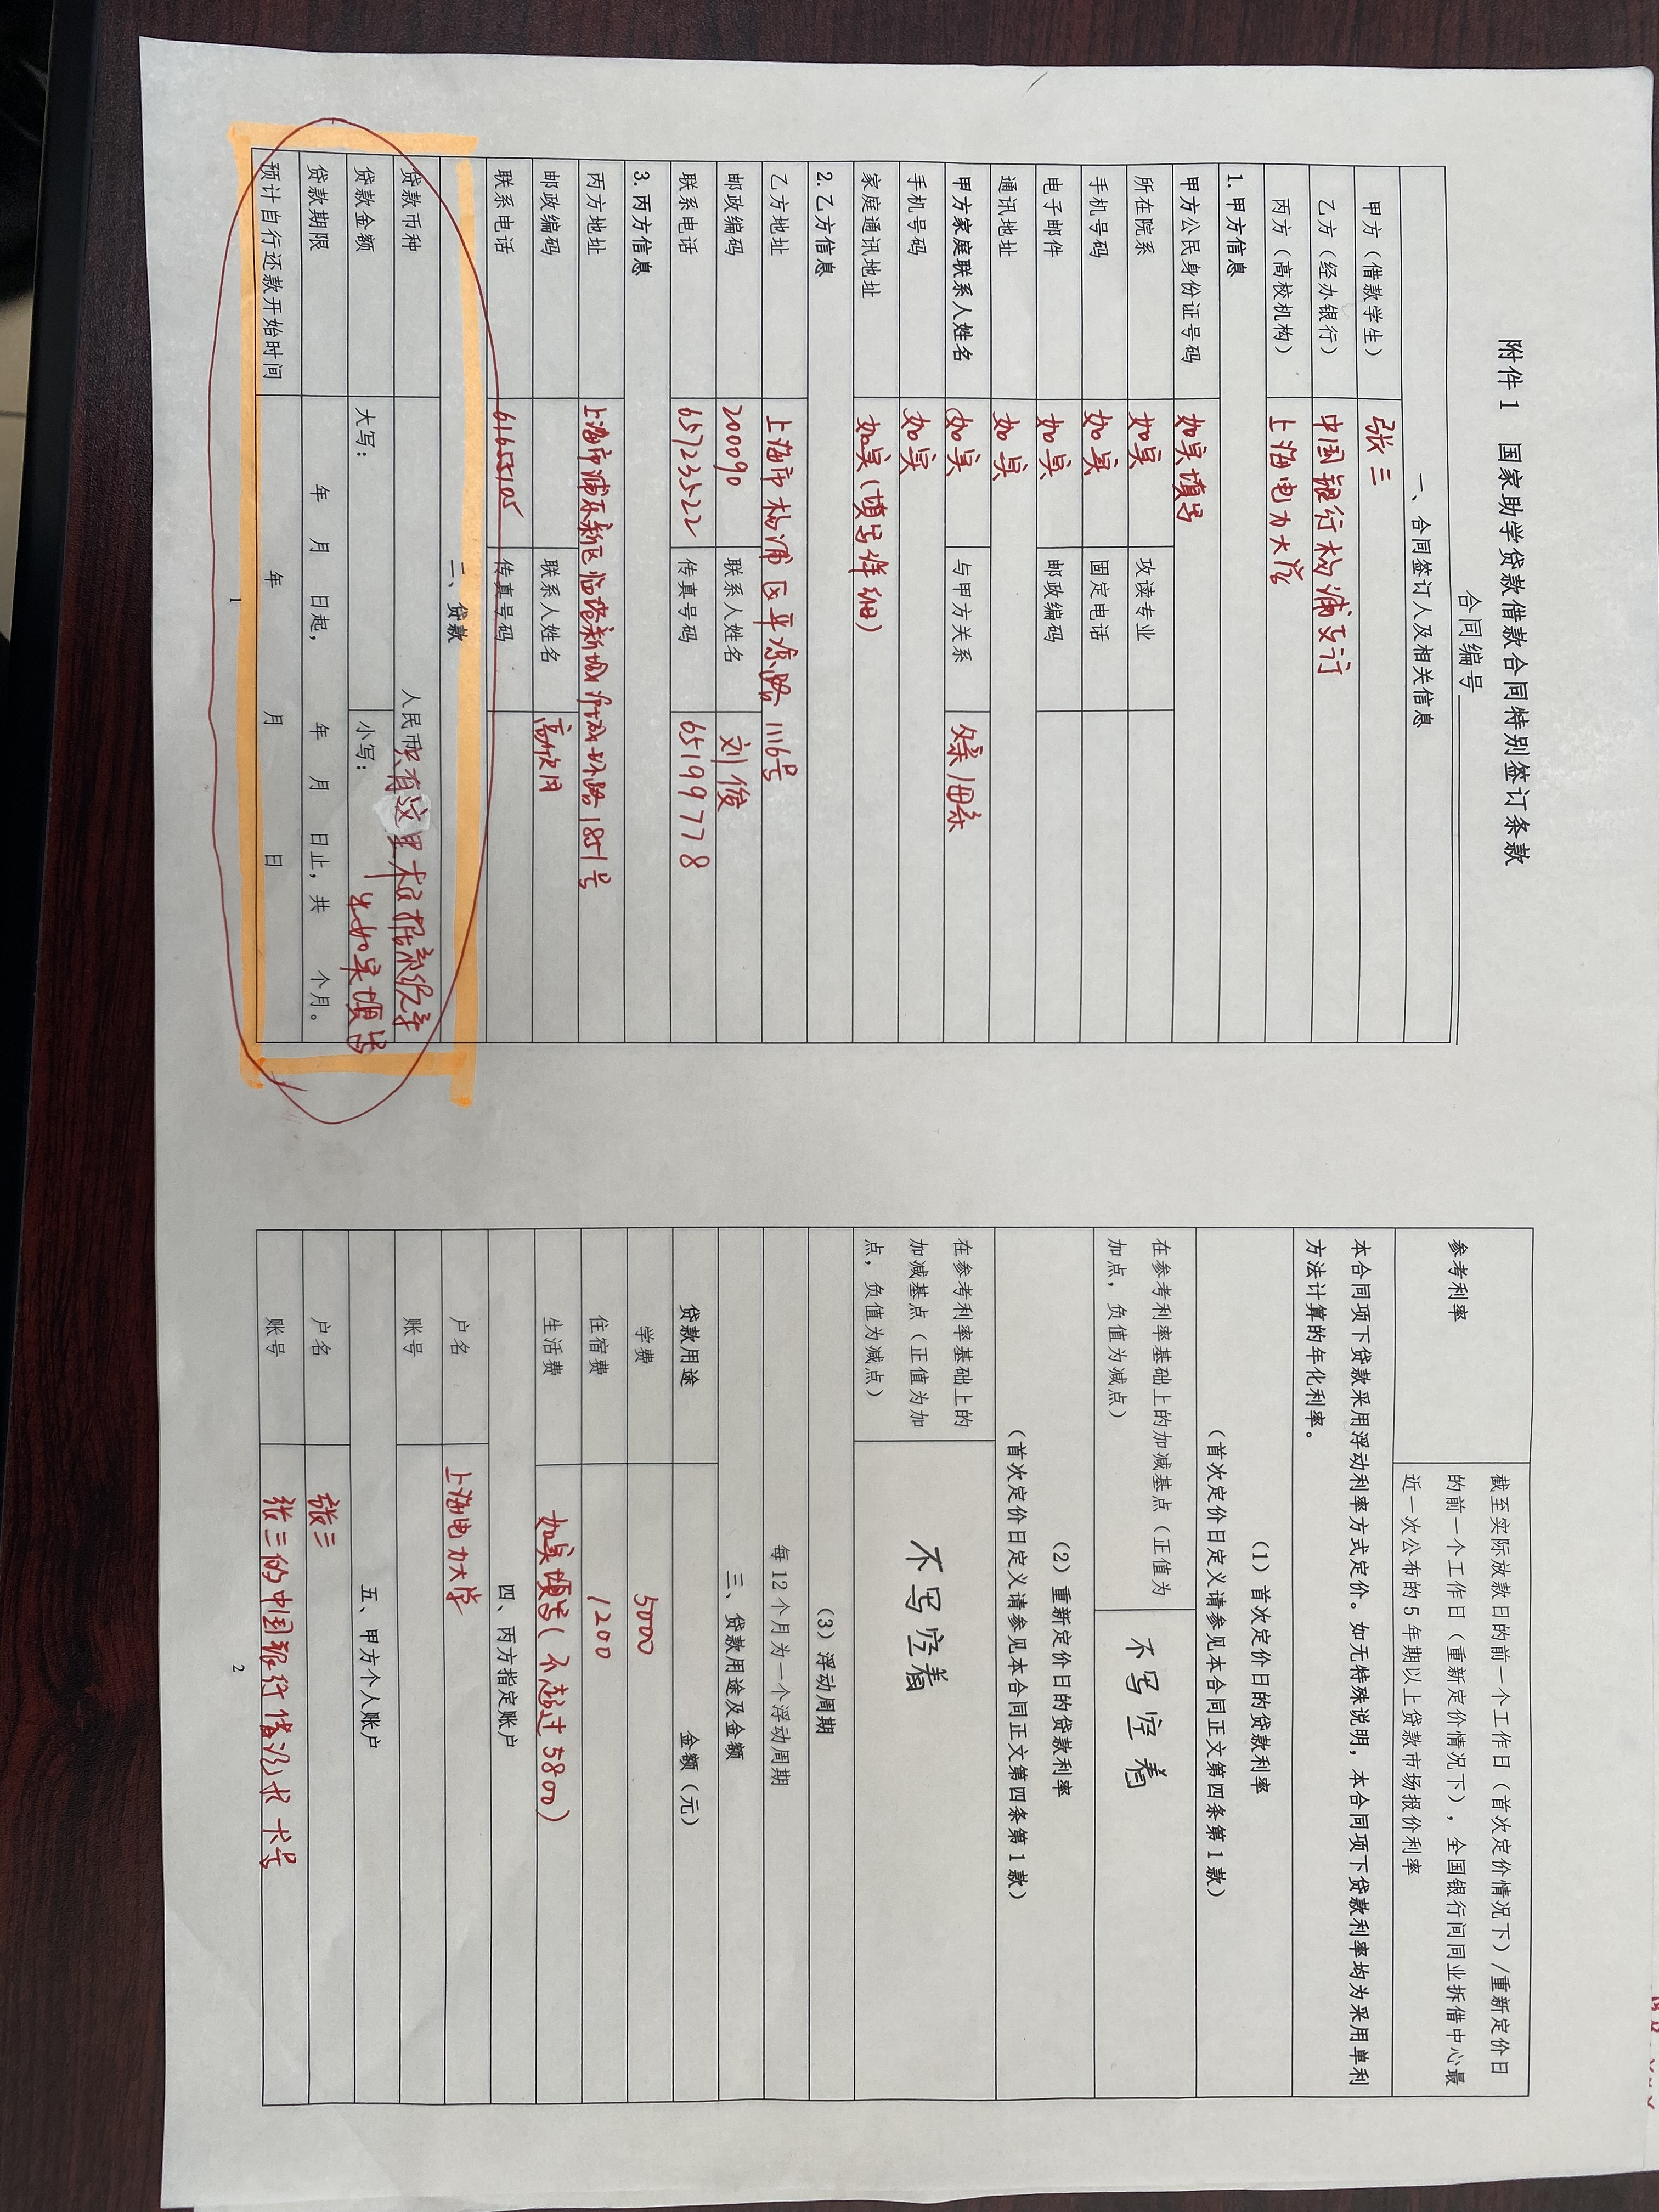 附件1 国家助学贷款借款合同特别签订条款
合同编号
一、合同签订人及相关信息
甲方（借款学生） 张三
乙方（经办银行） 中国银行杨浦支行
丙方（高校机构） 上海电力大学
1. 甲方信息
甲方公民身份证号码 如实填写
所在院系 如实 攻读专业
手机号码 如实 固定电话
电子邮件 如实 邮政编码
通讯地址 如实
甲方家庭联系人姓名 如实 与甲方关系
手机号码 如实
家庭通讯地址 如实（填写详细）
2. 乙方信息
乙方地址 上海市杨浦区平凉路1116号
邮政编码 200090 联系人姓名 刘俊
联系电话 65723522 传真号码 65199778
3. 丙方信息
丙方地址 上海市浦东新区临港新城沪城环路1851号
邮政编码 联系人姓名
联系电话 61655105 传真号码
二、贷款
贷款币种 人民币 只有这里根据
贷款金额 大写： 小写： 如实填写
贷款期限 年 月 日起， 年 月 日止，共 个月。
预计自行还款开始时间 年 月 日
1
参考利率 截至实际放款日的前一个工作日（首次定价情况下）/重新定价日
的前一个工作日（重新定价情况下），全国银行间同业拆借中心最
近一次公布的5年期以上贷款市场报价利率
本合同项下贷款采用浮动利率方式定价。如无特殊说明，本合同项下贷款利率均为采用单利
方法计算的年化利率。
（1）首次定价日的贷款利率
（首次定价日定义请参见本合同正文第四条第1款）
在参考利率基础上的加减基点（正值为
加点，负值为减点） 不写空着
（2）重新定价日的贷款利率
（首次定价日定义请参见本合同正文第四条第1款）
在参考利率基础上的
加减基点（正值为加
点，负值为减点） 不写空着
（3）浮动周期
每12个月为一个浮动周期
三、贷款用途及金额
贷款用途 金额（元）
学费 5000
住宿费 1200
生活费 如实填写（不超过5800）
四、丙方指定账户
户名 上海电力大学
账号
五、甲方个人账户
户名 张三
账号 张三的中国银行借记卡卡号
2